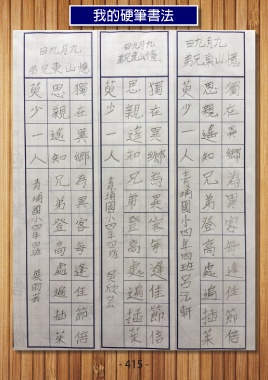 我的硬筆書法
九月九日
憶山東兄弟
獨在異鄉為異客每逢佳節倍
思親遙知兄弟登高處遍插茱
萸少一人
青埔國小四年四班呂云軒
九月九日
憶山東兄弟
獨在異鄉為異客每逢佳節倍
思親遙知兄弟登高處遍插茱
萸少一人
青埔國小四年四班
九月九日
憶山東兄弟
獨在異鄉為異客每逢佳節倍
思親遙知兄弟登高處遍插茱
萸少一人
青埔國小四年四班
- 415 -